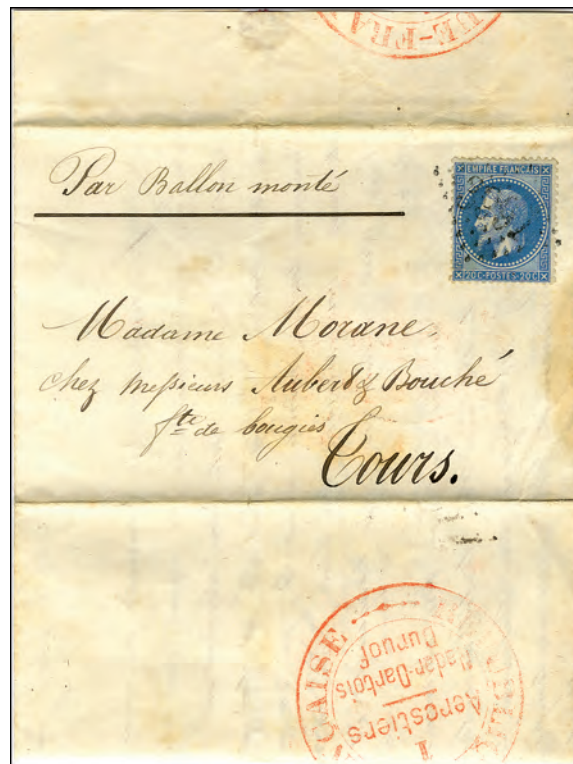 DE-FRA
Par Ballon monté
EMPIRE FRANÇAIS
20C-POSTES-20C
Madame Morane,
chez messieurs Aubert & Bouché
fte de bougies
Tours.
ÇAISE
Nadar-Dartois
Duruof
Aerostiers